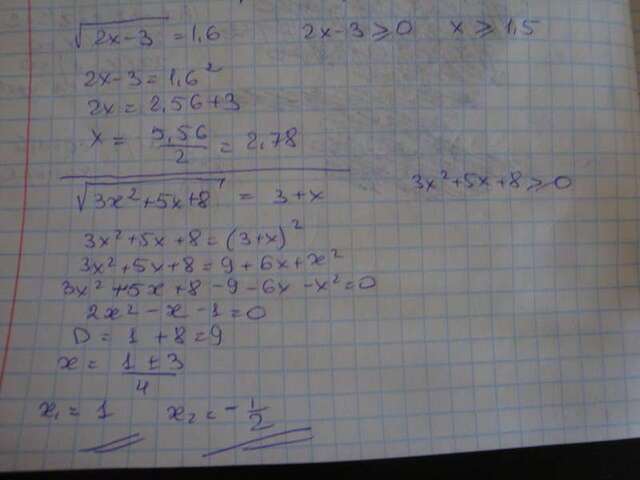 √2x-3 = 1,6 2x-3 ≥ 0 x ≥ 1,5
2x-3 = 1,6²
2x = 2,56+3
x = 5,56/2 = 2,78
√3x²+5x+8 = 3+x 3x²+5x+8 ≥ 0
3x²+5x+8 = (3+x)²
3x²+5x+8 = 9+6x+x²
3x²+5x+8-9-6x-x²=0
2x²-x-1=0
D = 1+8=9
x = 1±3/4
x₁ = 1 x₂ = -1/2